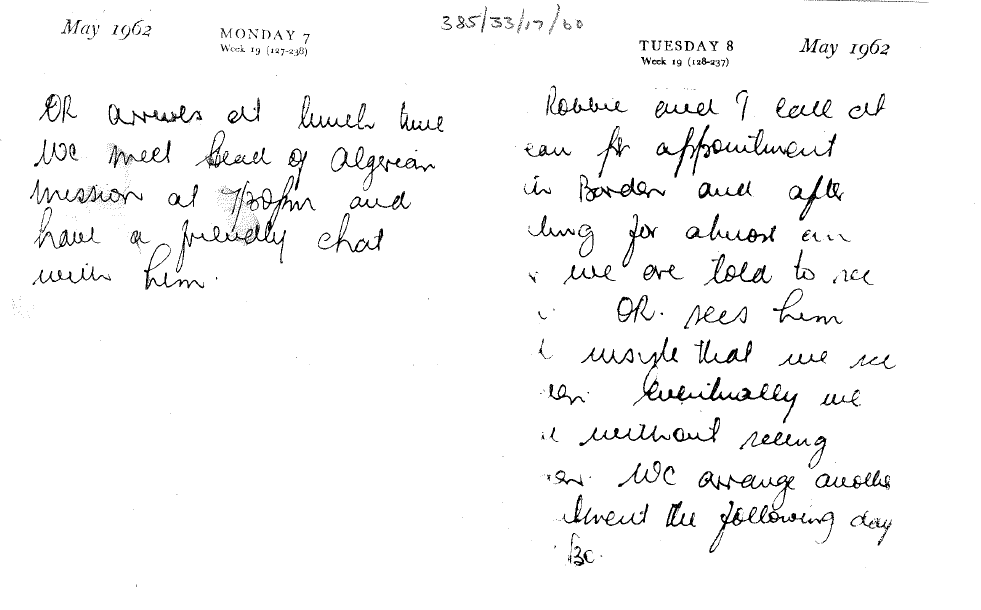 May 1962
MONDAY 7
Week 19 (127-238)
OR arrives at lunch time
We meet head of Algerian
mission at 7/30pm and
have a friendly chat
with him.
385/33/17/60
TUESDAY 8
Week 19 (128-237)
May 1962
Robbie and I call at
ean for appointment
in and after
ting for almost an
we are told to see
OR. sees him
insists that we see
Eventually we
without seeing
We arrange another
tment the following day